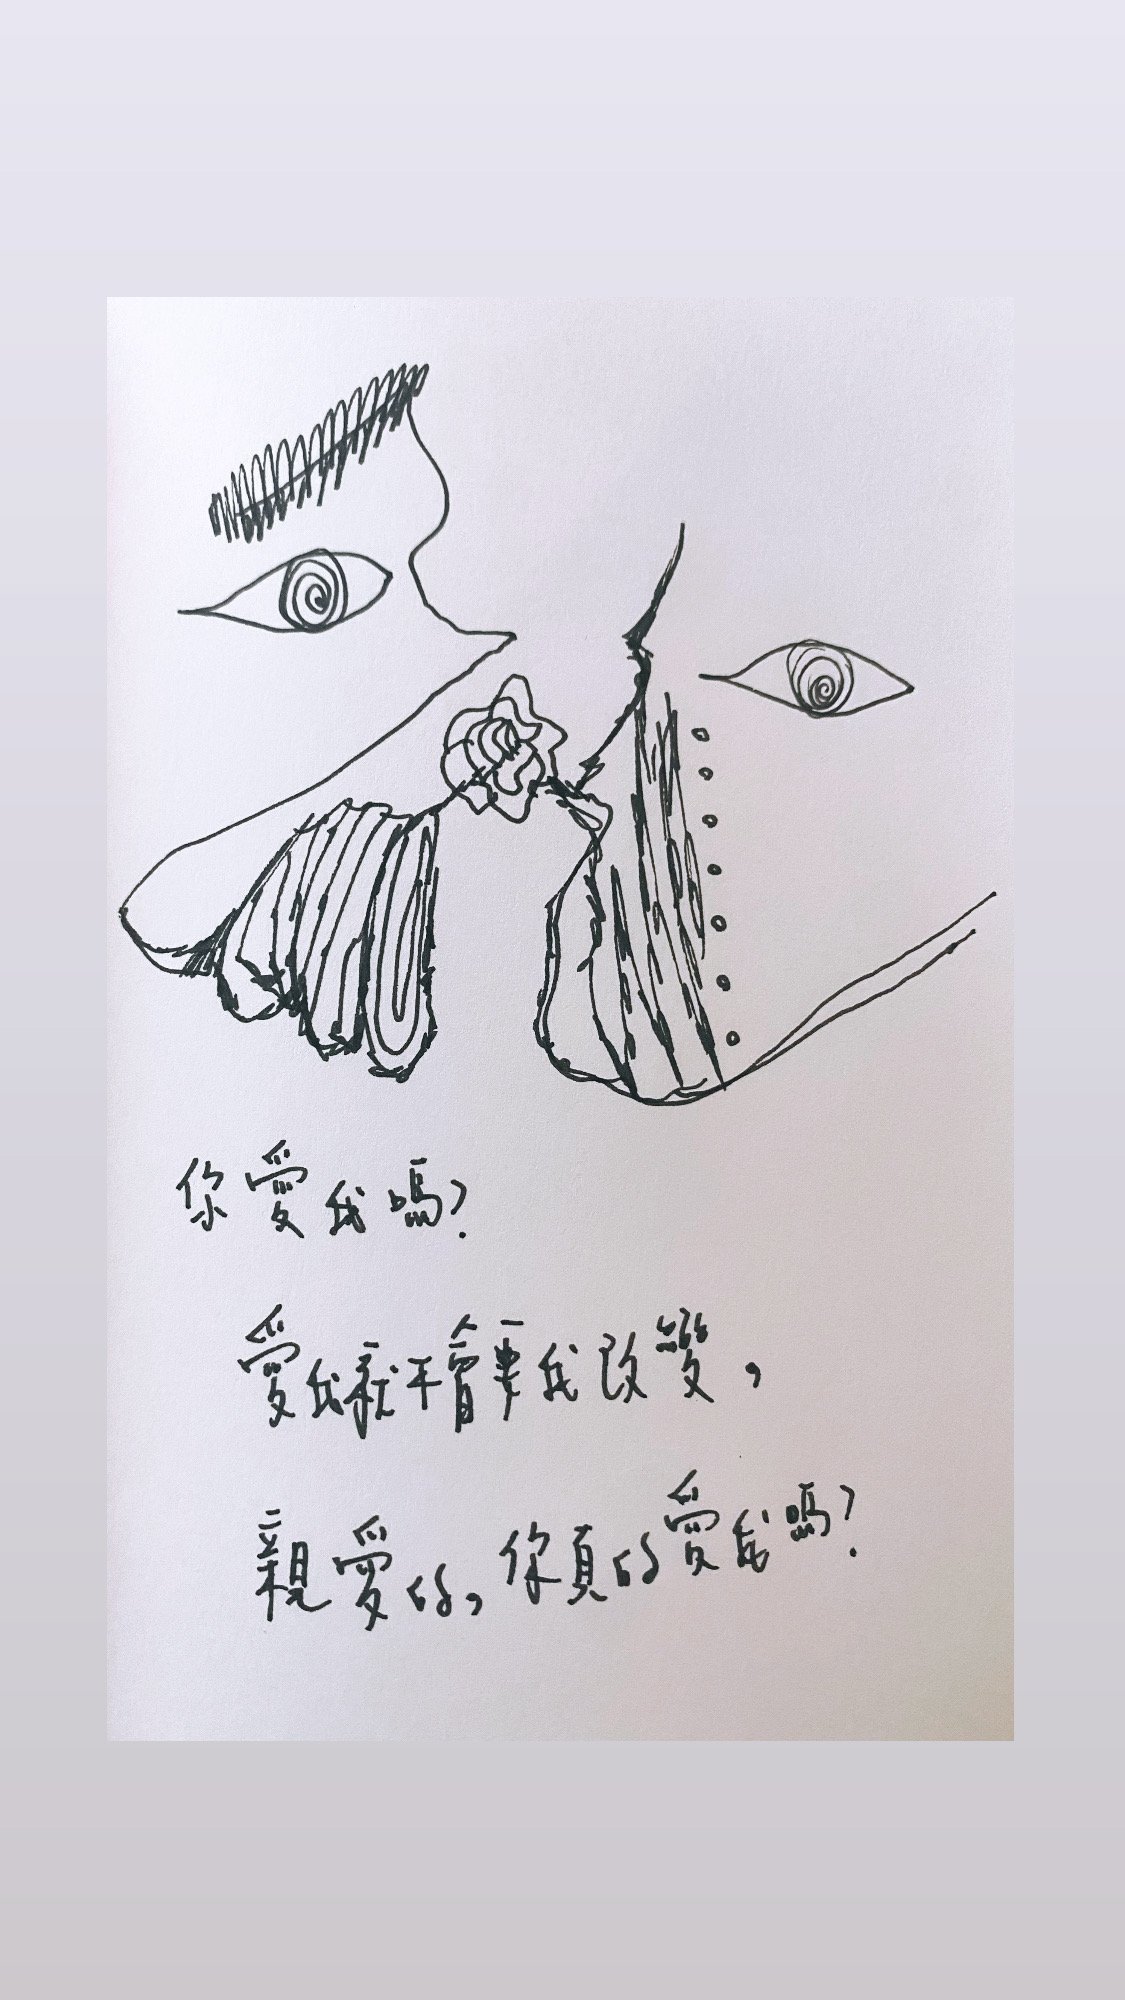 你愛我嗎？
愛我就不會要我改變，
親愛的，你真的愛我嗎？